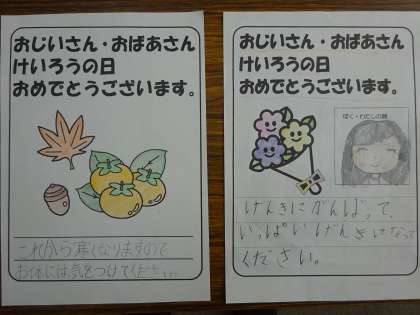 おじいさん・おばあさん
けいろうの日
おめでとうございます。
これから寒くなりますので
お体には気をつけてください。
おじいさん・おばあさん
けいろうの日
おめでとうございます。
ぼく・わたしの顔
げんきにがんばって、
いっぱいげんきになって
ください。